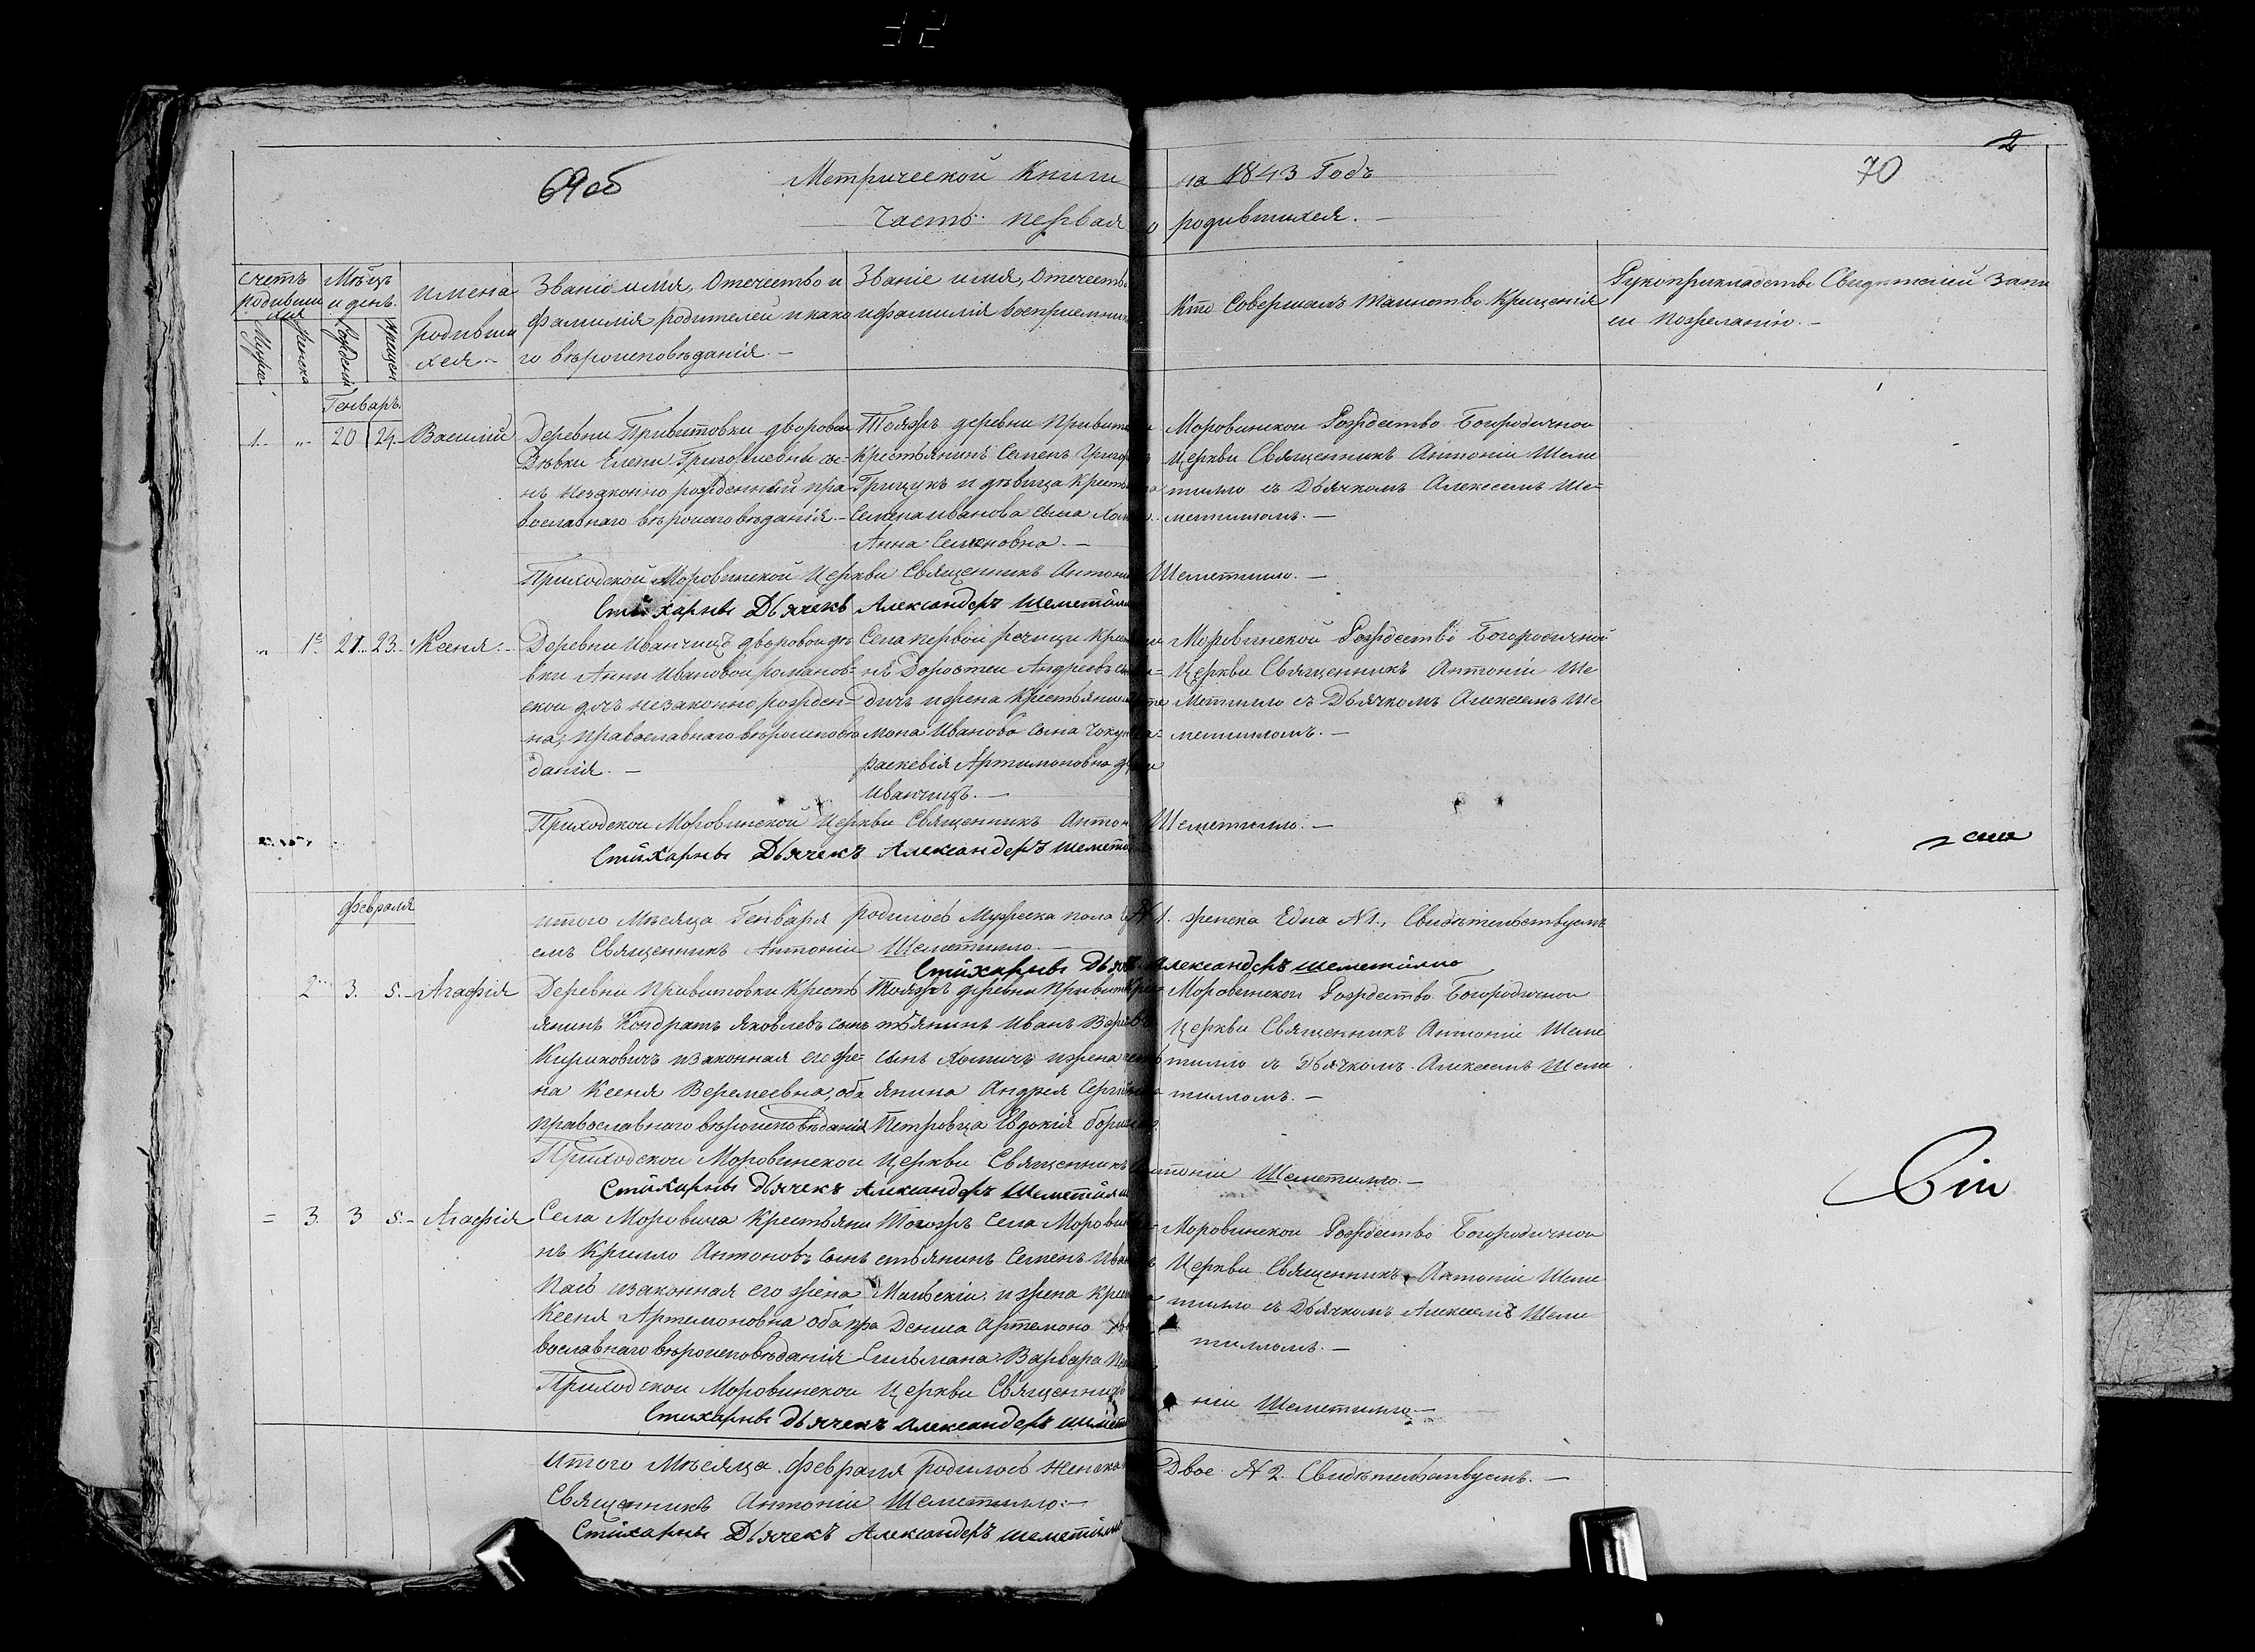 2
69об
Метрической Книги на 1843 Годъ
70
Часть первая о родившихся. —
Счетъ родившихся
Мѣсцъ и день.
Имена родившихся. —
Званіе имя, Отечество и фамилія родителей и какого вѣроисповѣданія. —
Званіе имя, Отечество и фамилія восприемник
Кто Совершалъ таинство Крещенія
Рукоприкладство Свидѣтелей записи по желанію. —
Мужс
Женска
Рожденія
Крещен
Генваръ.
1. „ 20 24. Василій
Деревни Привитовки дворовой
Дѣвки Елены Григорьевны сы-
нъ незаконно рожденный пра-
вославнаго вѣроисповѣданія. —
Тояжъ деревни Привит
Крестьянинъ Семенъ Григор
Грицукъ и дѣвица Крест
Семена Иванова сына
Анна Семеновна. —
Моровинской Рождество Богородичной
Церкви Священникъ Антоній Шеме
тилло съ Дьячкомъ Алексеемъ Ше-
метилломъ. —
Приходской Моровинской Церкви Священникъ Антоній Шеметилло. —
Стихарны Дьячекъ Александеръ Шеметилло
„ 1. 21. 23. Ксенія. —
Деревни Иванчицъ дворовой дѣ
вки Анны Ивановой романов-
ской дочь незаконно рожден-
на, православнаго вѣроисповѣ
данія. —
Села первой речицы Крест
нъ Доростеи Андреевъ сынъ
дичь и жена Крестьянина
мона Иванова сына
раскевія Артимоновна
Иванчицъ. —
Моровинской Рождество Богородичной
Церкви Священникъ Антоній Ше
метилло съ Дьячкомъ Алексеемъ Ше
метилломъ. —
Приходской Моровинской Церкви Священникъ Антон Шеметилло. —
Стихарны Дьячекъ Александеръ Шемети
Февраля
Итого Мѣсяца Генваря родилось Мужеска пола №1. женска Една №1., Свидѣтельствуемъ
емъ Священникъ Антоній Шеметилло. —
Стихарны Дьяче Александеръ Шеметилло
2 3. 5. Агафія
Деревни Привитовки Кресть
янинъ Кондратъ Яковлевъ сынъ
Кириковичъ и законная его же-
на Ксенія Веремеевна, оба
православнаго вѣроисповѣданія
Тояжъ деревни Привит Крес-
тьянинъ Иванъ
сынъ Хомичъ и жена
янина Андрея Серг
Петровца Евдокія
Моровинской Рождество Богородичной
Церкви Священникъ Антоній Шеме
тилло съ Дьячкомъ Алексеемъ Шеме
тилломъ. —
Приходской Моровинской Церкви Священникъ Антоній Шеметилло. —
Стихарны Дьячекъ Александеръ Шеметилло
= 3. 3 5. Агафія
Села Моровина Крестьяни
нъ Крилло Антоновъ сынъ
Пась и законная его жена
Ксенія Артемоновна оба пра
вославнаго вѣроисповѣданія
Тогожъ Села Моровин
стьянинъ Семенъ Иван
и жена Кре
Данила Артемона
Сильмана Варвара
Моровинской Рождество Богородичной
Церкви Священникъ Антоній Шеме
тилло съ Дьячкомъ Алексеемъ Шеме
тилломъ. —
Приходской Моровинской Церкви Священникъ ній Шеметилло. —
Стихарны Дьячекъ Александеръ Шемет
Итого Мѣсяца Февраля родилось женска Двое №2. Свидѣтельствуемъ. —
Священникъ Антоній Шеметилло. —
Стихарны Дьячекъ Александеръ Шеметилло